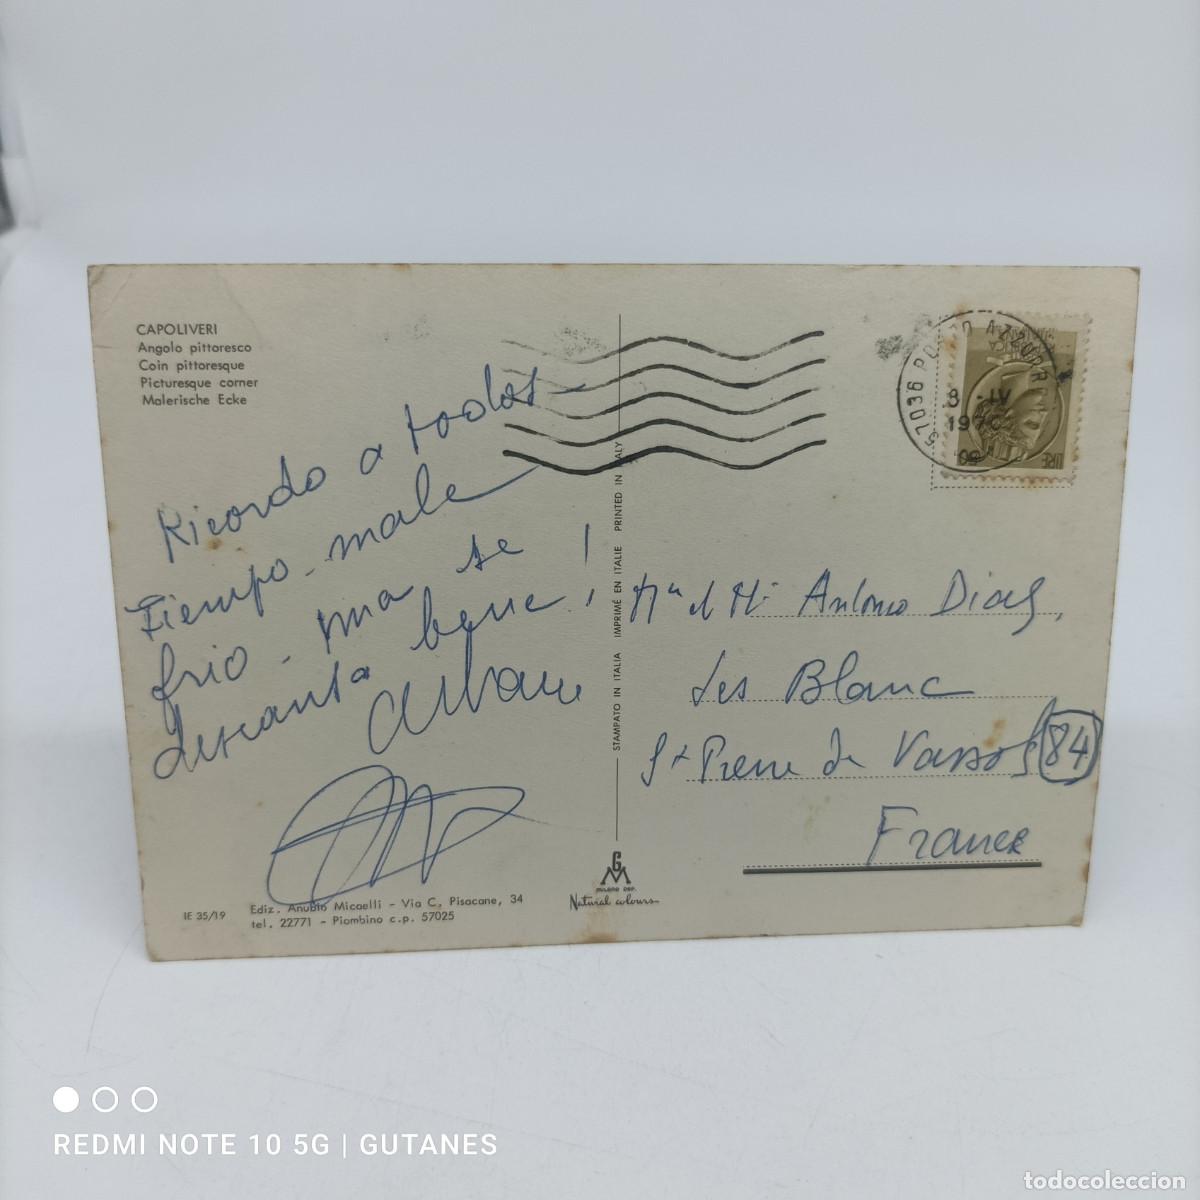 CAPOLIVERI
Angolo pittoresco
Coin pittoresque
Picturesque corner
Malerische Ecke
Ricordo a todos -
Tiempo - male -
frio - ma se
descanta bene !
IE 35/19
Ediz. Anubio Micaelli - Via C. Pisacane, 34
tel. 22771 - Piombino c.p. 57025
STAMPATO IN ITALIA IMPRIMÉ EN ITALIE PRINTED IN ITALY
GM
MILANO DEP.
Natural colours
57036 PORTO AZZURRO
8 -IV
1970
LIRE 50
Antonio Dias,
Les Blanc
St Pierre de Vassols 84
France
REDMI NOTE 10 5G | GUTANES
todocoleccion